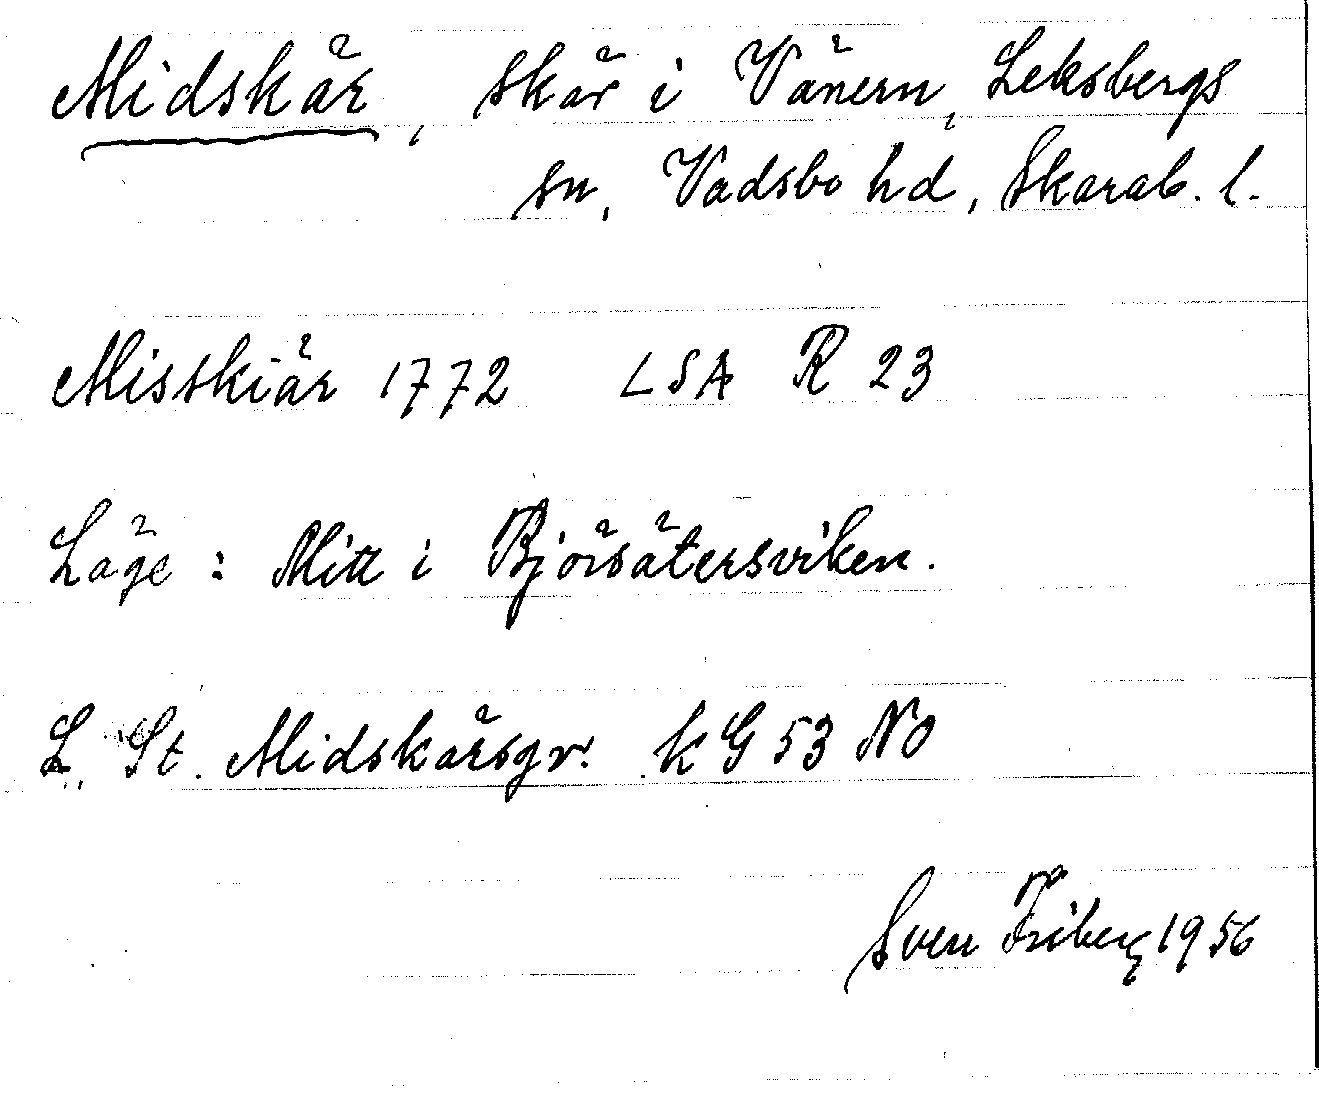 Midskär, skär i Vänern, Leksbergs
sn, Vadsbo hd, Skarab. l.
Misskiär 1772 LSA R 23
Läge: Mitt i Björsätersviken.
L. St. Midskärsgr. kG 53 NO
Sven Friberg 1956